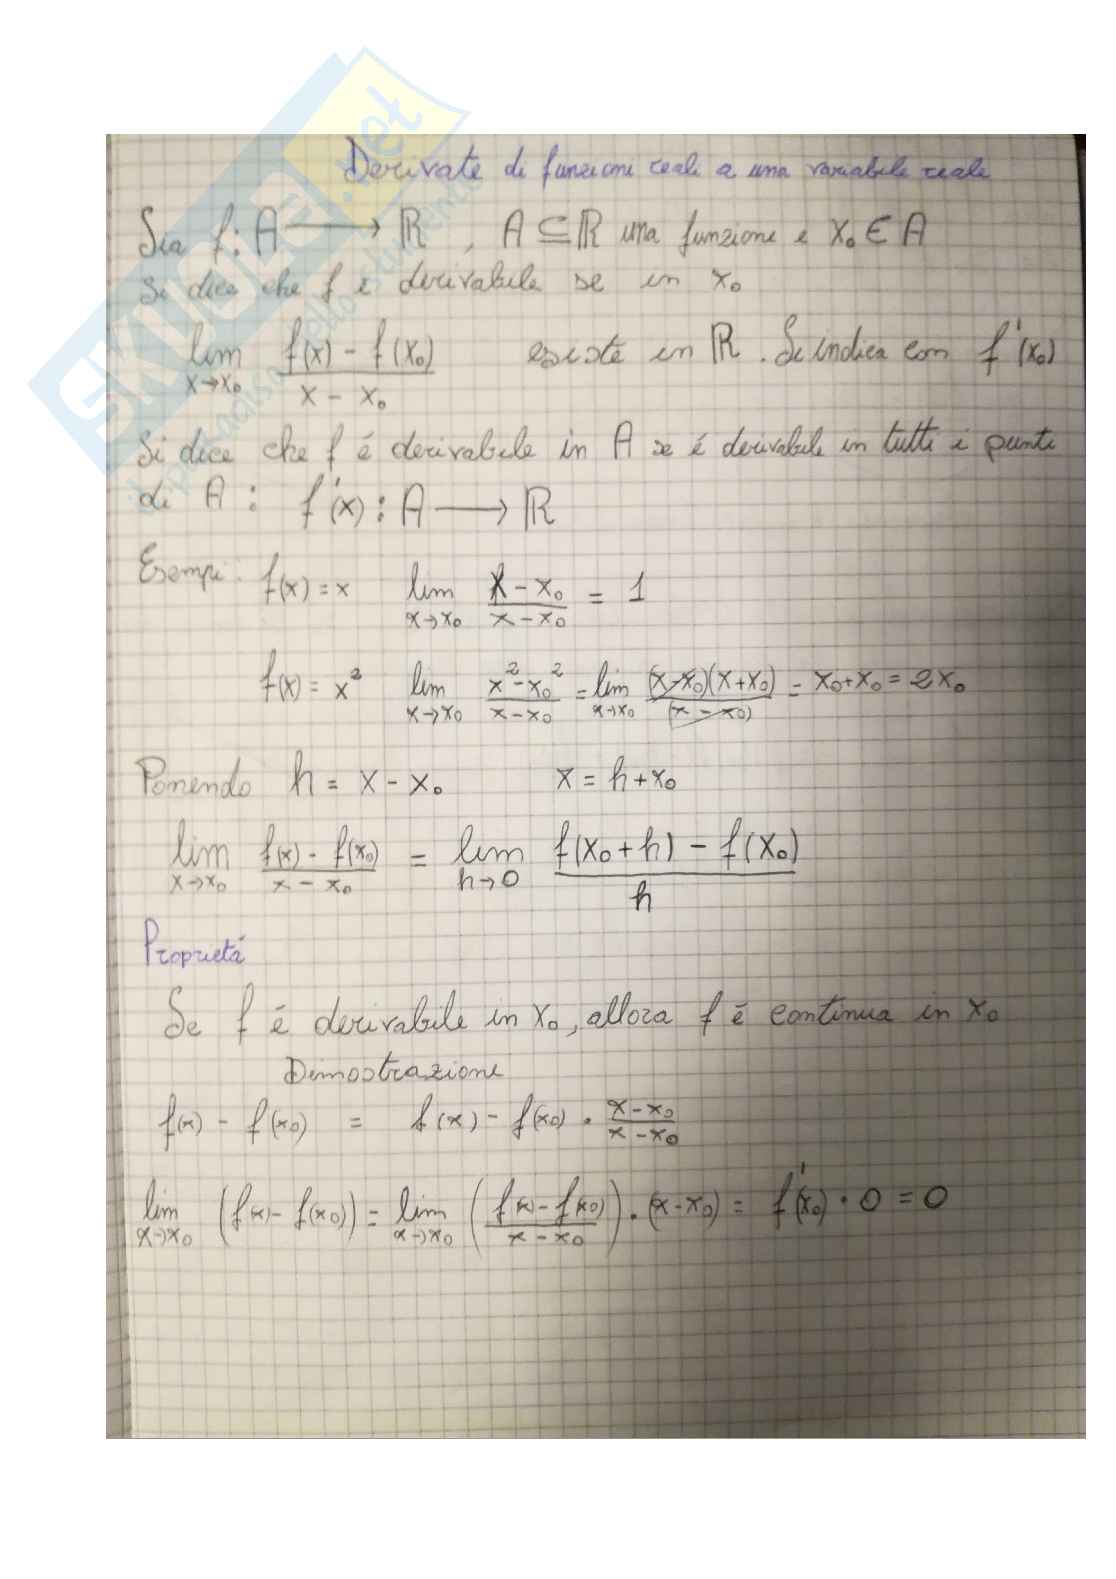 Derivate di funzioni reali a una variabile reale
Sia f: A ⟶ ℝ , A ⊆ ℝ una funzione e x₀ ∈ A
Si dice che f è derivabile se in x₀
lim x→x₀ (f(x) - f(x₀)) / (x - x₀) esiste in ℝ. Si indica con f'(x₀)
Si dice che f é derivabile in A se é derivabile in tutti i punti
di A : f'(x) : A ⟶ ℝ
Esempi: f(x) = x lim x→x₀ (x - x₀) / (x - x₀) = 1
f(x) = x² lim x→x₀ (x² - x₀²) / (x - x₀) = lim x→x₀ (x-x₀)(x+x₀) / (x - x₀) = x₀+x₀ = 2x₀
Ponendo h = x - x₀ x = h + x₀
lim x→x₀ (f(x) - f(x₀)) / (x - x₀) = lim h→0 (f(x₀ + h) - f(x₀)) / h
Proprietá
Se f é derivabile in x₀, allora f é continua in x₀
Dimostrazione
f(x) - f(x₀) = f(x) - f(x₀) · (x - x₀) / (x - x₀)
lim x→x₀ (f(x) - f(x₀)) = lim x→x₀ ((f(x) - f(x₀)) / (x - x₀)) · (x - x₀) = f'(x₀) · 0 = 0
SKUOLA.net